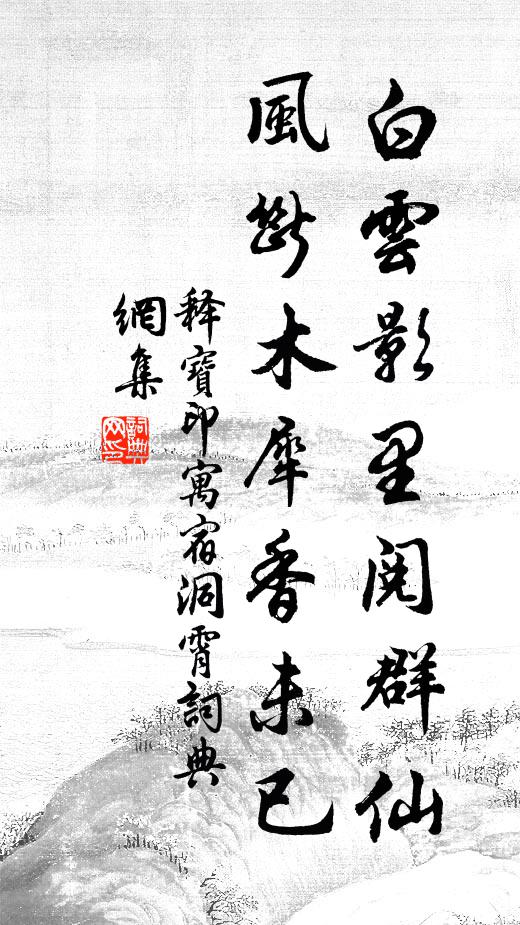 白雲影里閱群仙
風斷木犀香未已
釋寶印寓宿洞霄詞典
網集
詞典
网印